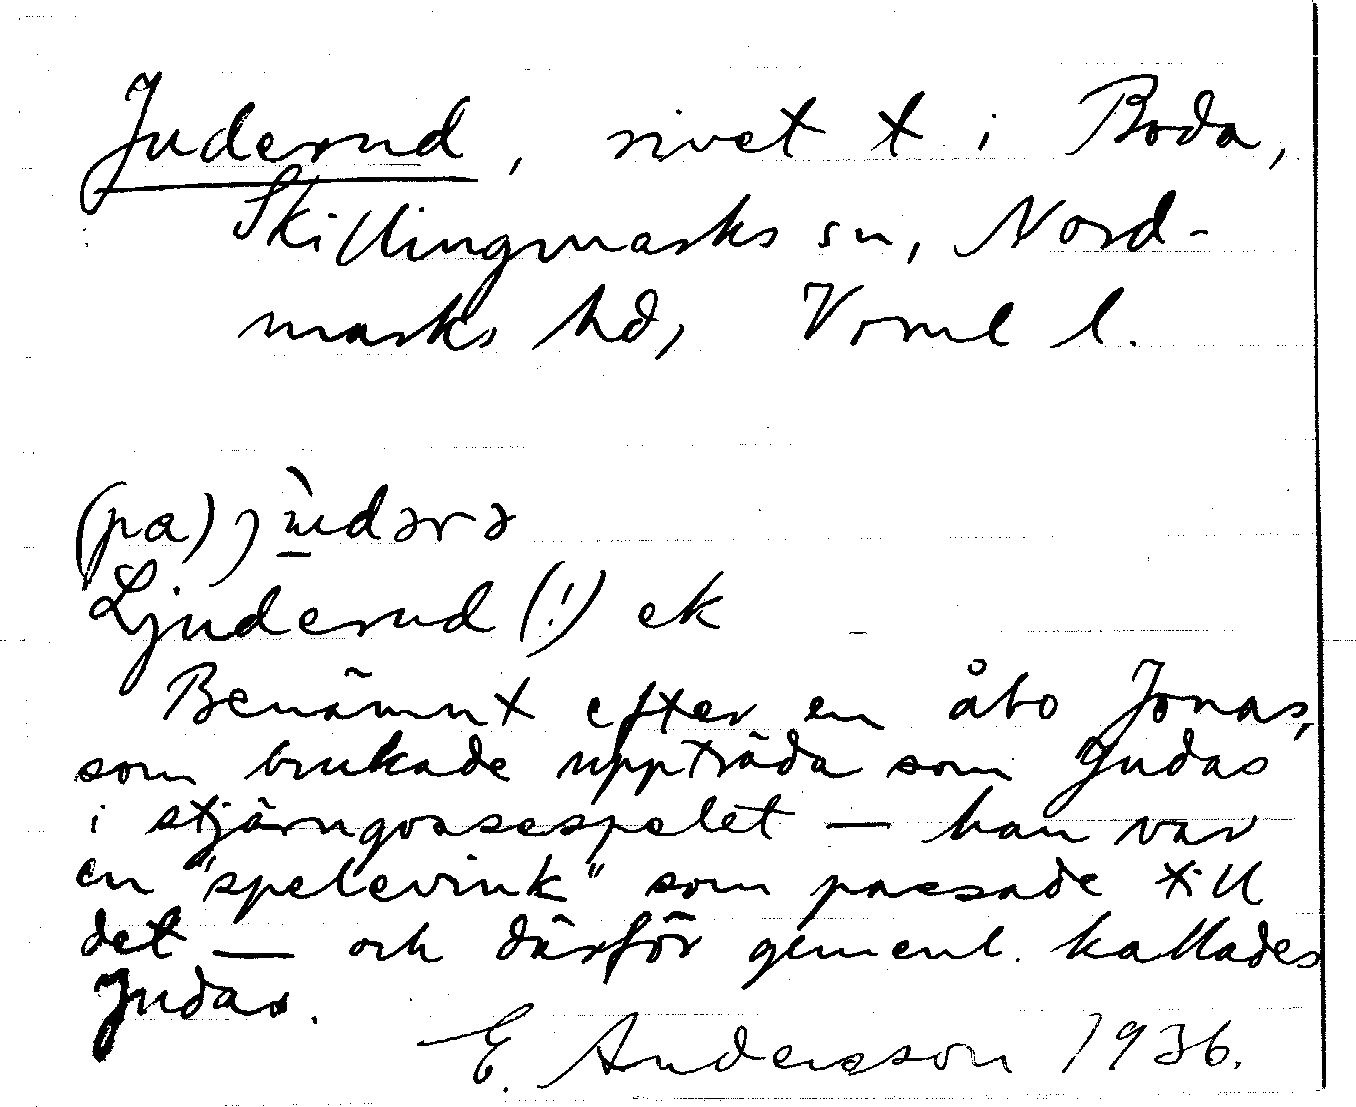 Juderud, rivet t i Boda,
Skillingmarks sn, Nord-
marks hd, Vrml l.
(pa) jùdərə
Ljuderud (!) ek
Benämnt efter en åbo Jonas,
som brukade uppträda som Judas
i stjärngossespelet — han var
en "spelevink" som passade till
det — och därför gemenl. kallades
Judas.
E. Andersson 1936.